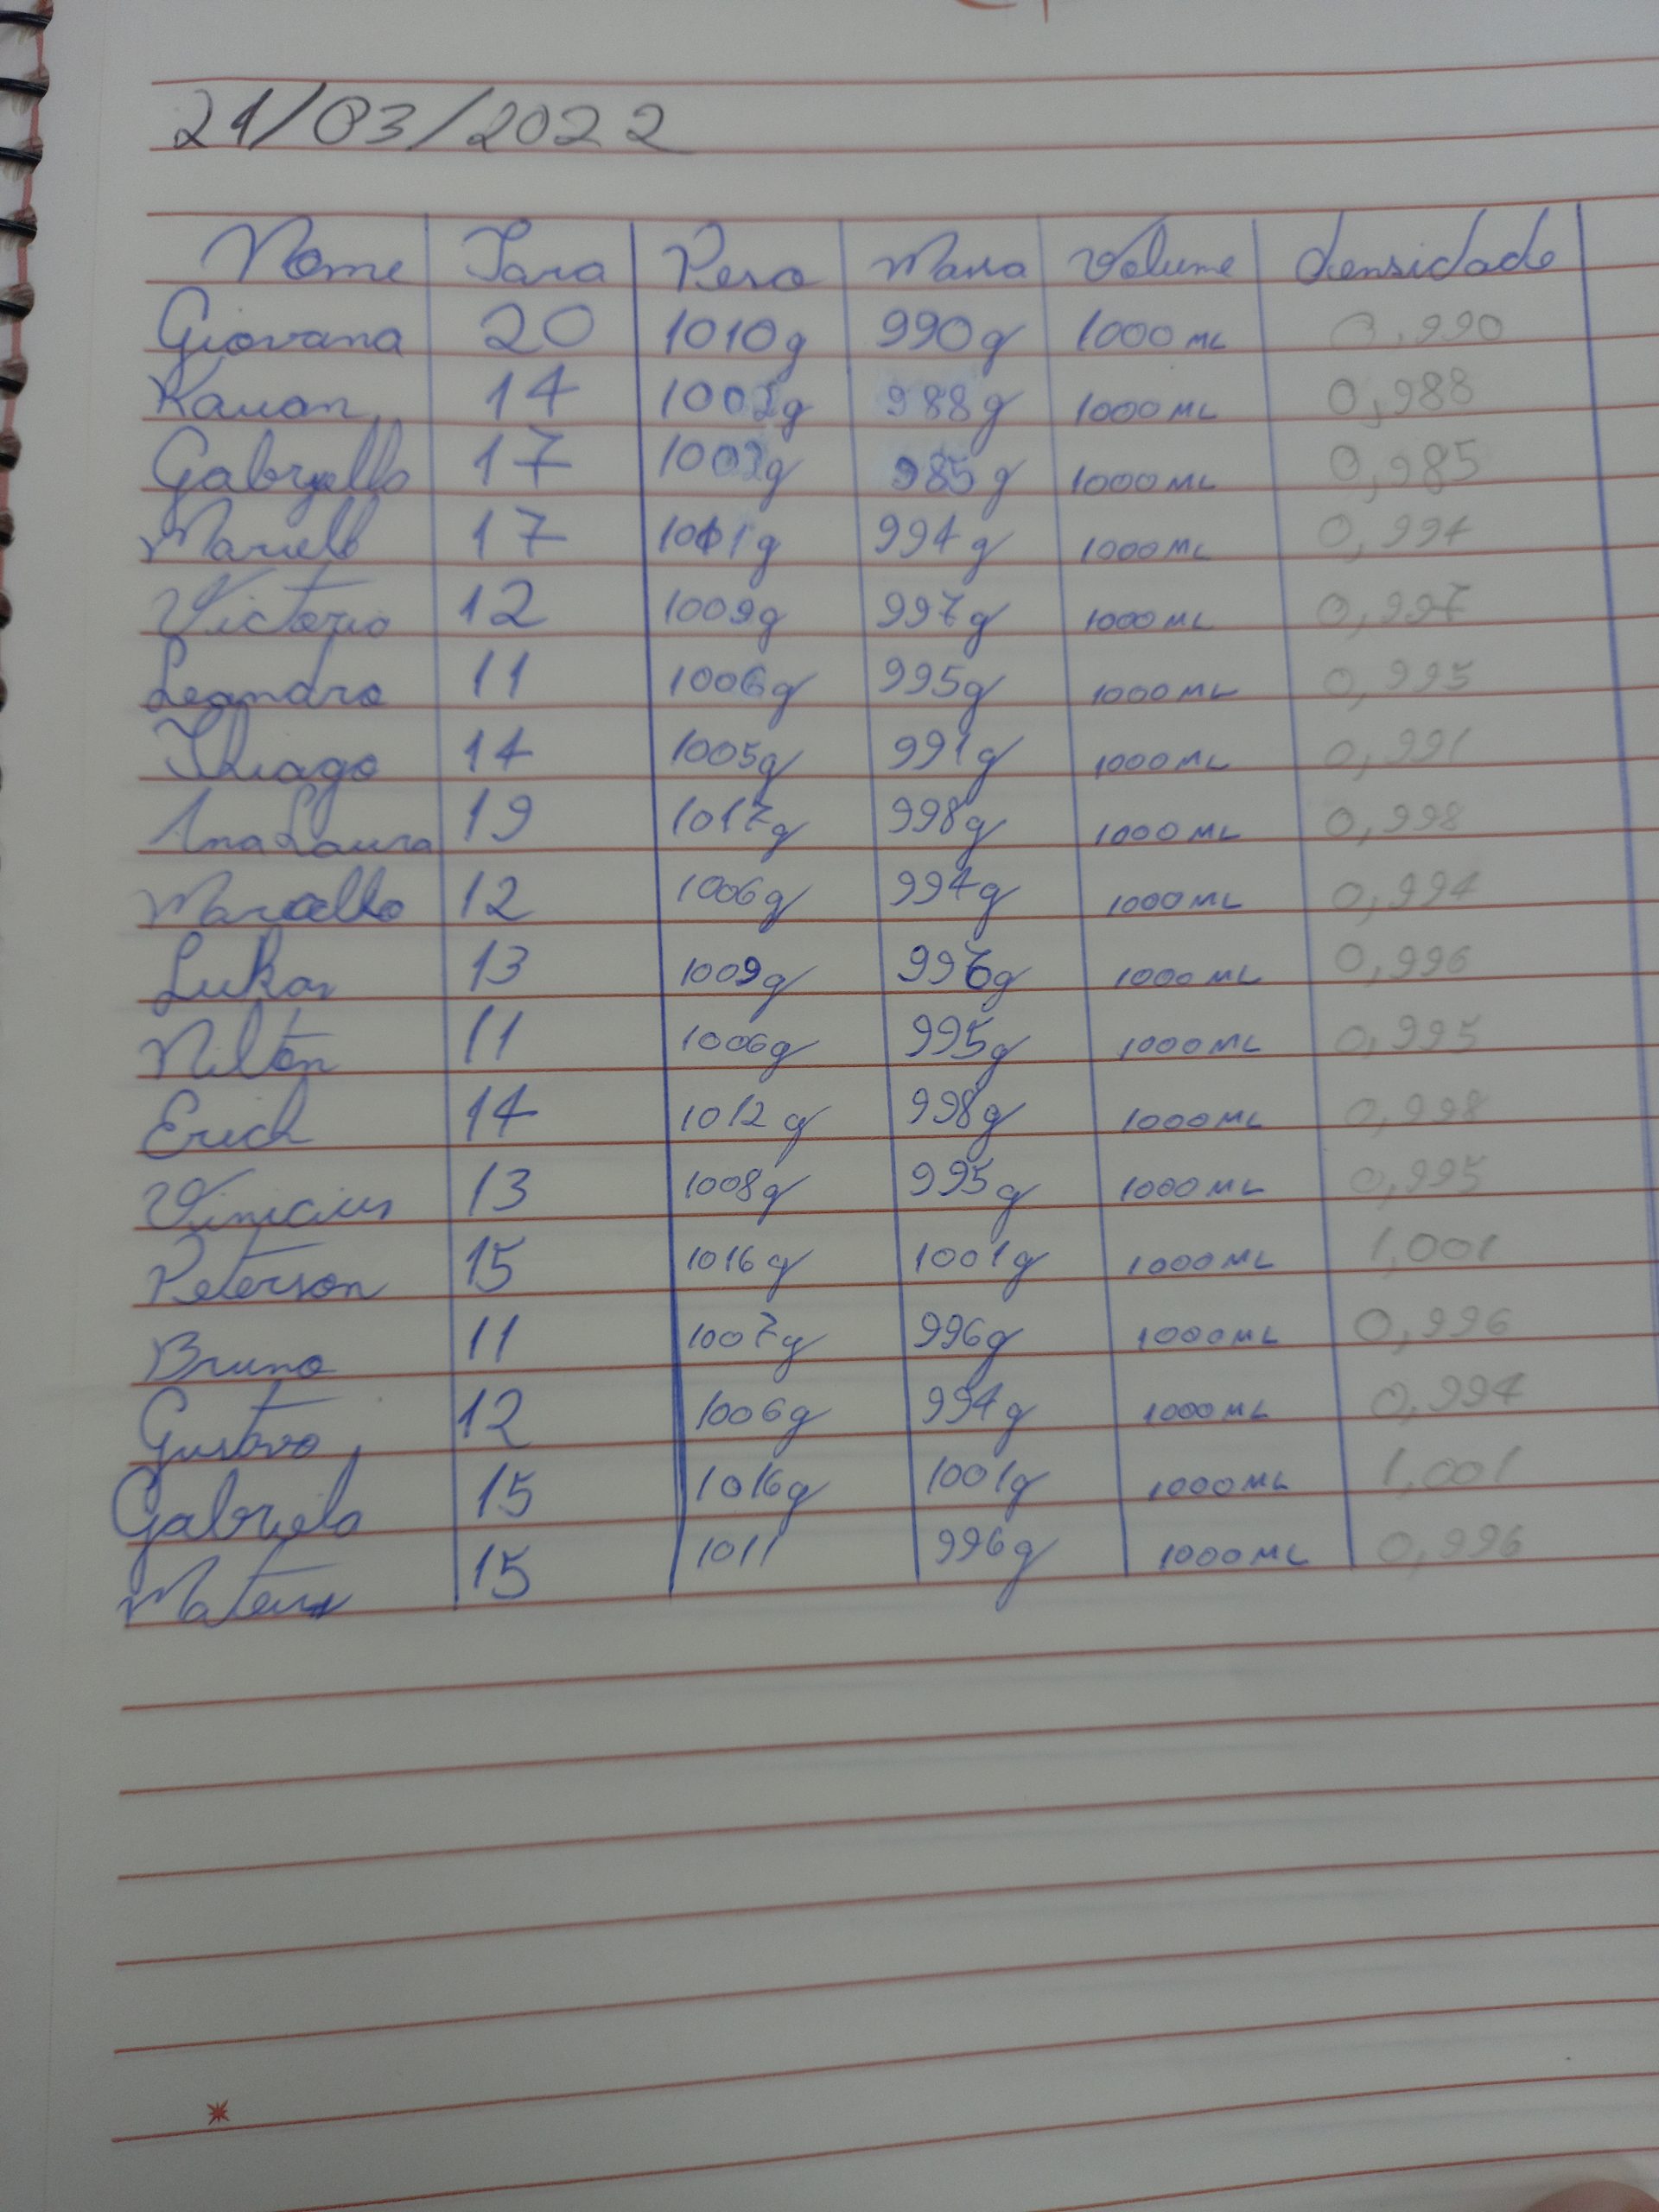 21/03/2022
Nome Tara Peso Massa Volume densidade
Giovana 20 1010g 990g 1000mL 0,990
Kauan 14 1002g 988g 1000mL 0,988
Gabryella 17 1002g 985g 1000mL 0,985
17 1011g 994g 1000mL 0,994
Victoria 12 1009g 997g 1000mL 0,997
Leandro 11 1006g 995g 1000mL 0,995
Thiago 14 1005g 991g 1000mL 0,991
Ana Laura 19 1017g 998g 1000mL 0,998
Marcella 12 1006g 994g 1000mL 0,994
Lukas 13 1009g 996g 1000mL 0,996
Nilton 11 1006g 995g 1000mL 0,995
Erich 14 1012g 998g 1000mL 0,998
Vinicius 13 1008g 995g 1000mL 0,995
Peterson 15 1016g 1001g 1000mL 1,001
Bruno 11 1007g 996g 1000mL 0,996
Gustavo 12 1006g 994g 1000mL 0,994
Gabriela 15 1016g 1001g 1000mL 1,001
Mateus 15 1011 996g 1000mL 0,996